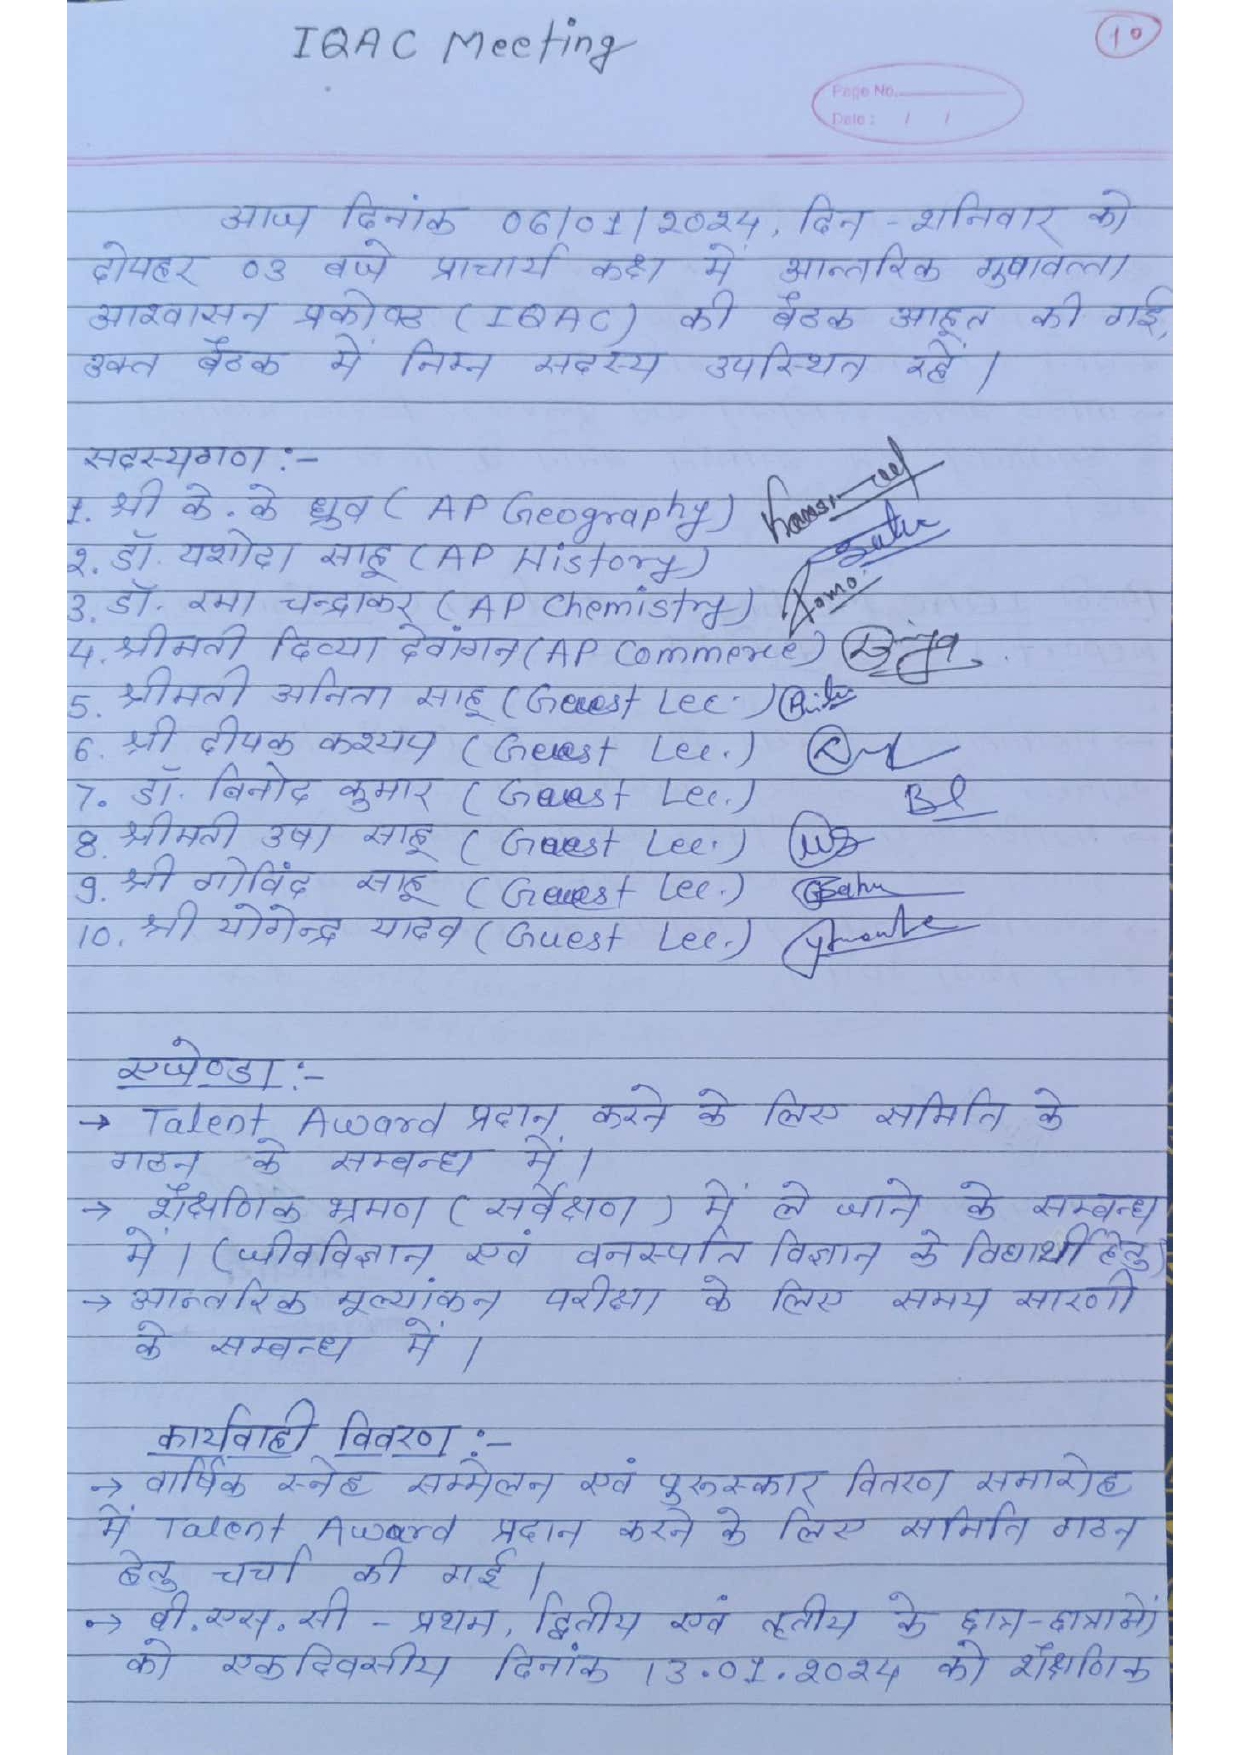 IQAC Meeting
10
Page No.
Date : / /
आज दिनांक 06/01/2024, दिन - शनिवार को
दोपहर 03 बजे प्राचार्य कक्ष में आन्तरिक गुणवत्ता
आश्वासन प्रकोष्ठ (IQAC) की बैठक आहूत की गई,
उक्त बैठक में निम्न सदस्य उपस्थित रहें।
सदस्यगण :-
1. श्री के. के ध्रुव ( AP Geography)
2. डॉ. यशोदा साहू (AP History) Sahu
3. डॉ. रमा चन्द्राकर (AP Chemistry)
4. श्रीमती दिव्या देवांगन (AP Commerce)
5. श्रीमती अनिता साहू (Guest Lec.)
6. श्री दीपक कश्यप (Guest Lec.)
7. डॉ. विनोद कुमार (Guest Lec.)
8. श्रीमती उषा साहू (Guest Lec.)
9. श्री गोविंद साहू (Guest Lec.) GSahu
10. श्री योगेन्द्र यादव (Guest Lec.)
एजेण्डा :-
→ Talent Award प्रदान करने के लिए समिति के
गठन के सम्बन्ध में।
→ शैक्षणिक भ्रमण (सर्वेक्षण) में ले जाने के सम्बन्ध
में। (जीवविज्ञान एवं वनस्पति विज्ञान के विद्यार्थी हेतु)
→ आन्तरिक मूल्यांकन परीक्षा के लिए समय सारणी
के सम्बन्ध में।
कार्यवाही विवरण :-
→ वार्षिक स्नेह सम्मेलन एवं पुरूस्कार वितरण समारोह
में Talent Award प्रदान करने के लिए समिति गठन
हेतु चर्चा की गई।
→ बी.एस.सी - प्रथम, द्वितीय एवं तृतीय के छात्र-छात्राओं
को एकदिवसीय दिनांक 13.01.2024 को शैक्षणिक